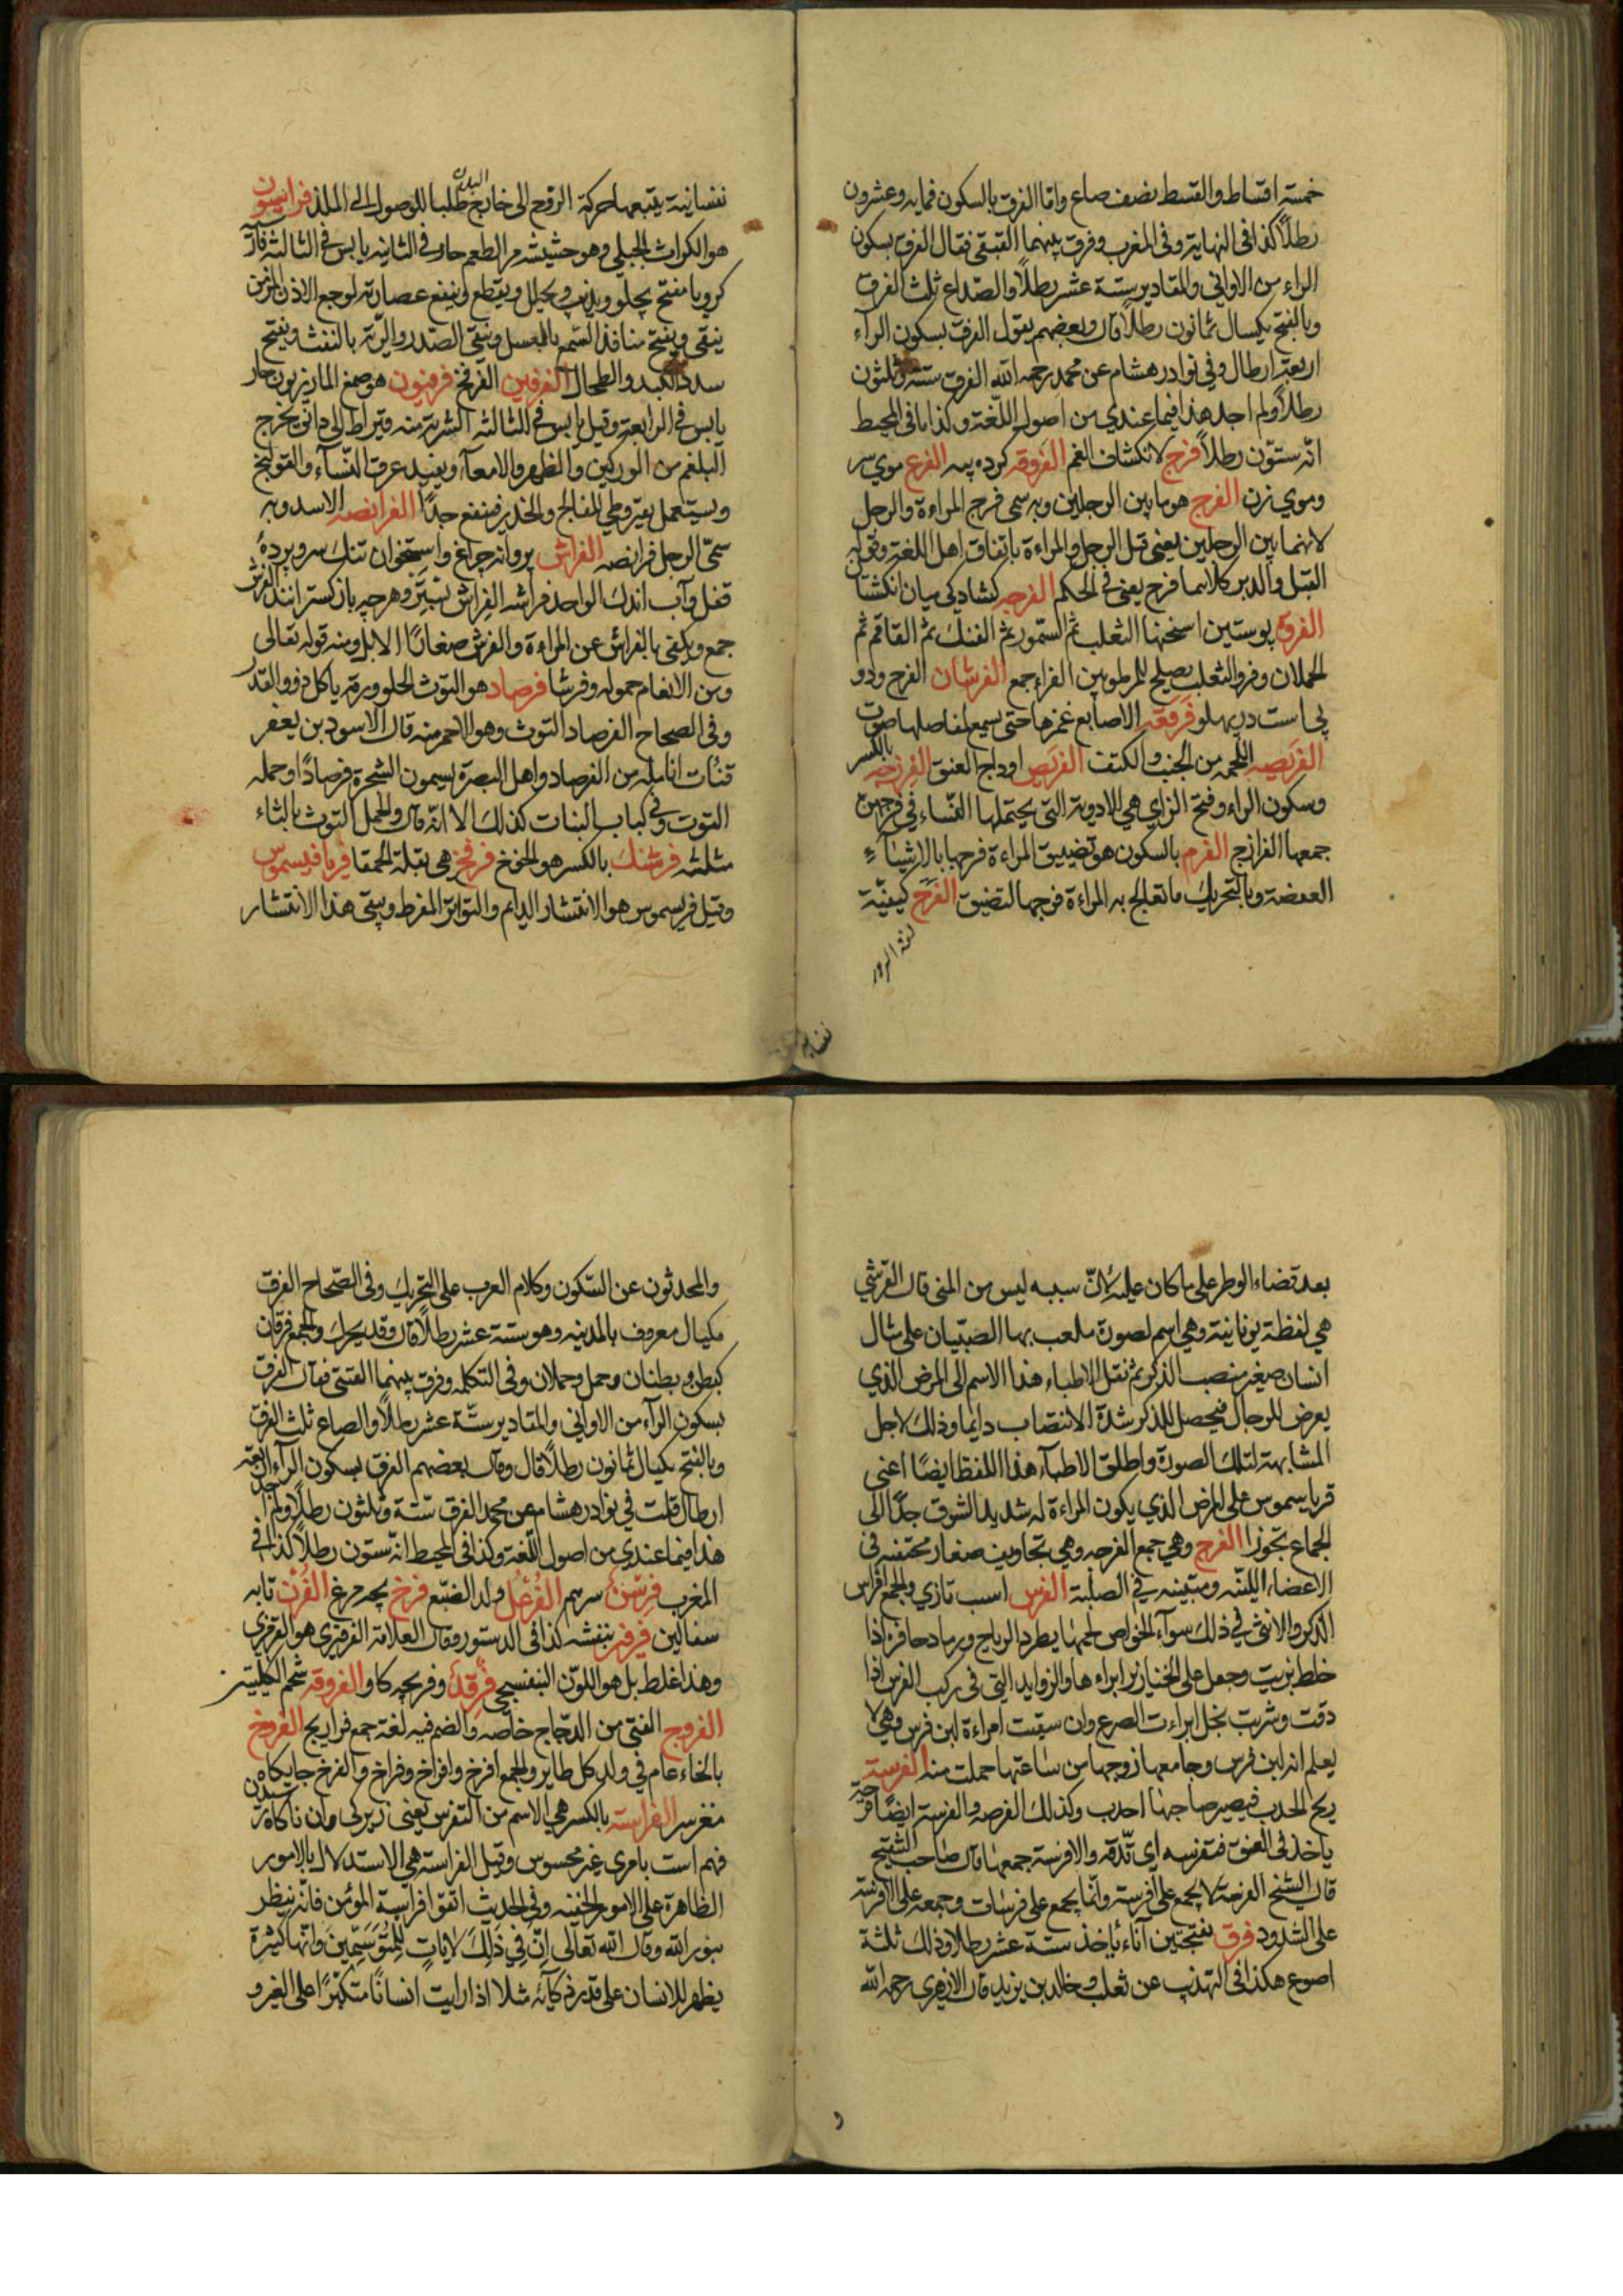 خمسة اقساط والقسط نصف صاع واما الفرق بالسكون فمايه وعشرون
رطلاً كذا فى النهاية وفى المغرب وفرق بينهما القتبقى فقال الفرق بسكون
الراء من الاوانى والمقادير ستة عشر رطلاً والصاع ثلث الفرق
وبالفتح مكيال ثمانون رطلاً قال وبعضهم يقول الفرق بسكون الرآء
اربعة ارطال وفى نوادر هشام عن محمد رحمه الله الفرق ستة وثلثون
رطلاً ولم اجد هذا فيما عندي من اصول اللّغة وكذا ما فى المحيط
انّه ستّون رطلاً فرج لانكشاف الغم الفروقه كرده پيه الفرع موي سر
وموي زن الفرج هو ما بين الرجلين وبه سمى فرج المراءة والرجل
لانهما بين الرجلين يعنى قبل الرجل والمراءة باتفاق اهل اللغة وقوله
القبل والدبر كلاهما فرج يعنى فى الحكم الفرجه كشادكى ميان انكشتان
الفروه پوستين اسخنها الثعلب ثم السمور ثم الفنك ثم القاقم ثم
الحملان وفرو الثعلب يصلح للمرطوبين الفراء جمع الفرشان الفرج ودو
پى است در پهلو فرقعه الاصابع غمزها حتى يسمع لمفاصلها صوت
الفريصه اللحمه من الجنب والكتف الفريص اوداج العنق الفرزجه بالكسر
وسكون الراء وفتح الزاي هى الادوية التى يحتملها النساء فى فرجهن
جمعها الفرازج الفرم بالسكون هو تضييق المراءة فرجها بالاشياء
العفصة وبالتحريك ما تعالج به المراءة فرجها لتضيق الفرح كيفيّة
نفسانية يتبعها حركة الروح الى خارج البدن طلبا للوصول الى الملذ فراسيون
هو الكراث الجبلى وهو حشيشه مر الطعم حار فى الثانيه يابس فى الثالثه
مفتح يجلو ويذيب ويحلل ويقطع وينفع عصارته لوجع الاذن المزمن
ينقى ويفتح منافذ السّمع بالعسل وينقى الصّدر والرّية بالنفث ويفتح
سدد الكبد والطحال الفرفين الفرفخ فرفيون هو صمغ المازريون حار
يابس فى الرابعة وقيل يابس فى الثالثه الشربة منه قيراط الى دانق يخرج
البلغم من الوركين والظهر والامعآء ويفيد عرق النّسآء والقولنج
ويستعمل بقيروطي للفالج والخدر فينفع جدًّا الفرانصه الاسد وبه
سمّى الرجل فرانصه الفراش پروانه چراغ واستخوان تنك سر وپردهٔ
قفل وآب اندك الواحد فراشه الفِراش بستر وهرچه باز كسترانند الفرش
جمع ويكنى بالفراش عن المراءة والفرش صغار الابل ومنه قوله تعالى
ومن الانعام حمولة وفرشا فرصاد هو التوث الحلو ورقه ياكل دود القز
وفى الصحاح الفرصاد التوث وهو الاحمر منه قال الاسود بن يعفر
قنأت انامله من الفرصاد واهل البصرة يسمون الشجرة فرصادًا وحمله
التوت وفى كتاب النبات كذلك الا انّه قال والحمل التوث بالثاء
مثلثه فرشنك بالكسر هو الخوخ فرفخ هى بقلة الحمقا فريافيسموس
وقيل فريسموس هو الانتشار الدايم والتواتر المفرط ويبقى هذا الانتشار
بعد قضاء الوطر على ما كان عليه لانّ سببه ليس من المنى قال القرشي
هى لفظة يونانية وهى اسم لصورة ملعب بها الصّبيان على مثال
انسان صغير منصب الذكر ثم نقل الاطباء هذا الاسم الى المرض الذي
يعرض للرجال فيحصل للذكر شدّة الانتصاب دايما وذلك لاجل
المشابهة لتلك الصورة واطلق الاطبآء هذا اللفظ ايضًا اعنى
فرياسموس على المرض الذي يكون المراءة له شديد الشوق جدًّا الى
الجماع تجوزا الفرج وهى جمع الفرجه وهى تجاويف صغار محتفنه فى
الاعضاء الليّنه ومبينه فى الصلبة الفرس اسب تازي والجمع افراس
الذكر والانثى فى ذلك سوآء الخواص لحمها يطرد الرياح ورماد حافره اذا
خلط بزيت وجعل على الخنازير ابراءها والزوايد التى فى ركب الفرس اذا
دقت وشربت بخل ابراءت الصرع وان سقيت امراءة لبن فرس وهى لا
يعلم انه لبن فرس وجامعها زوجها من ساعتها حملت منه الفرسة
ريح الحدب فيصير صاحبها احدب وكذلك الفرصه والفرسة ايضًا قرحة
ياخذ فى العنق فتفرسه اى تدقّه والافرسة جمعها قال صاحب التنقيح
قال الشيخ الفرصة لا يجمع على افرسة وانما يجمع على فرسات وجمعه على الافرسة
على الشذوذ فرق بفتحتين آناء ياخذ ستة عشر رطلا وذلك ثلثة
اصوع هكذا فى التهذيب عن ثعلب وخالد بن يزيد قال الازهرى رحمه الله
والمحدثون عن السّكون وكلام العرب على التحريك وفى الصّحاح الفرق
مكيال معروف بالمدينه وهو ستة عشر رطلاً قال وقد يحرك والجمع فرقان
كبطن وبطنان وحمل وحملان وفى التكمله وفرق بينهما القتبى فقال الفرق
بسكون الرآء من الاوانى والمقادير ستّة عشر رطلاً والصاع ثلث الفرق
وبالفتح مكيال ثمانون رطلاً قال وقال بعضهم الفرق بسكون الرآء اربعة
ارطال قلت فى نوادر هشام عن محمد الفرق ستّة وثلثون رطلاً ولم اجد
هذا فيما عندي من اصول اللّغة وكذا فى المحيط انّه ستون رطلاً كذا فى
المغرب فرسن سرسم الفُرْعُل ولد الضبّع فرخ بچه مرغ الفُرْن تابه
سفالين فرفير بنفشه كذا فى الدستور وقال العلامة الفرفيرى هو القرمزى
وهذا غلط بل هو اللوّن البنفسجى فرقد وفر بچه كاو الفروقه شحم الكليتين
الفروج الفتى من الدجّاج خاصه والضم فيه لغة جمع فراريج الفروخ
بالخاء عام فى ولد كل طاير والجمع افرخ وافراخ وفراخ والفرخ جايكاه
مغز سر الفراسة بالكسر هى الاسم من التفرس يعنى زيركى وآن ناكاه رسيدن
فهم است بامرى غير محسوس وقيل الفراسة هى الاستدلال بالامور
الظاهرة على الامور الخفيه وفى الحديث اتقوا فراسة المؤمن فانّه ينظر
بنور الله وقال الله تعالى اِنَّ فِي ذٰلِكَ لَاٰيَاتٍ لِلْمُتَوَسِّمِينَ وانّها كثيرة
يظهر للانسان على قدر ذكآئه مثلا اذا رايت انسانًا متكبرًا على الغير و